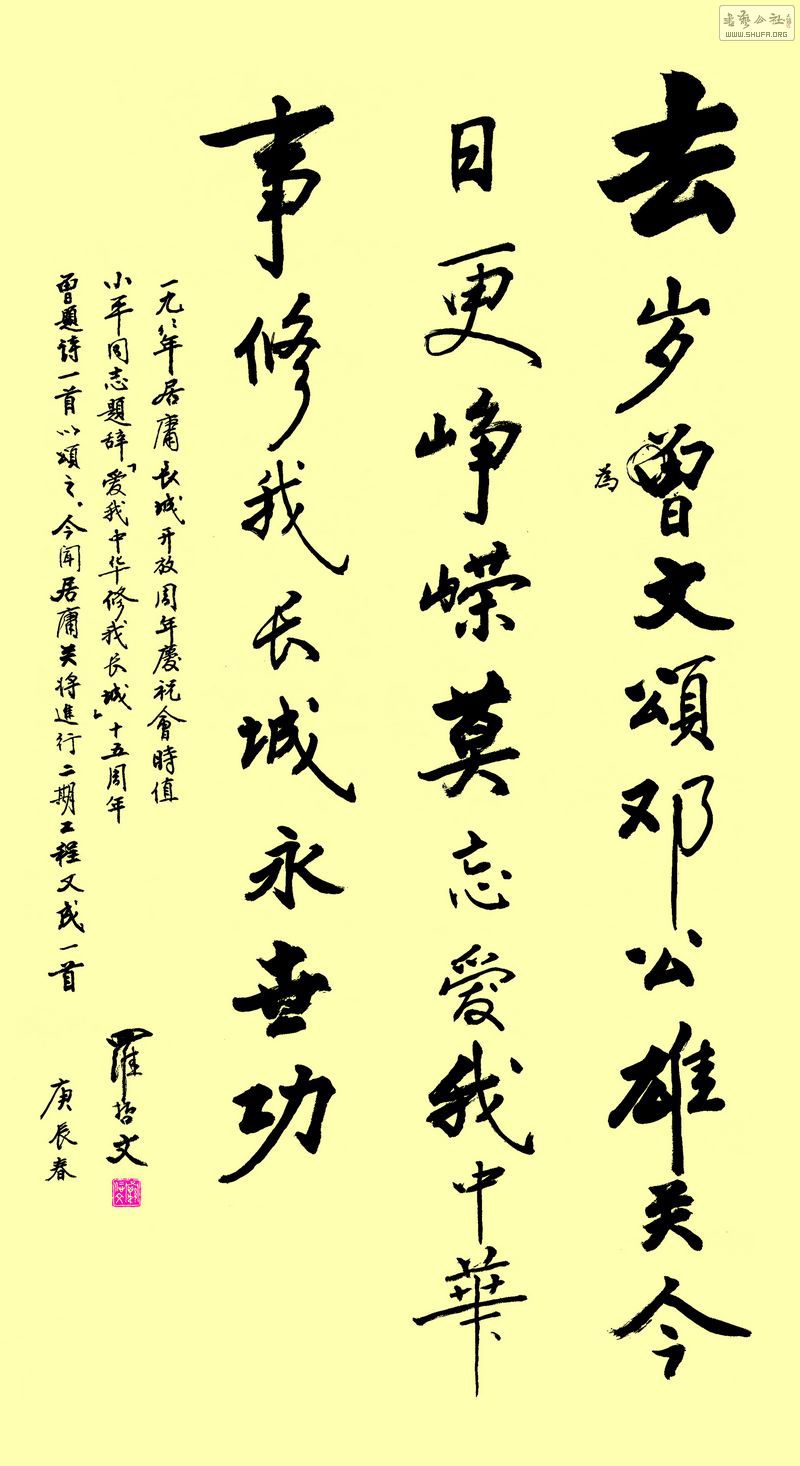 書藝公社
WWW.SHUFA.ORG
去岁曾文頌邓公雄关今
為
日更峥嵘莫忘愛我中華
事修我长城永世功
一九九八年居庸长城开放周年慶祝會時值
小平同志題辞「爱我中华修我长城」十五周年
曾題诗一首以頌之。今闻居庸关将進行二期工程又成一首
羅哲文
庚辰春